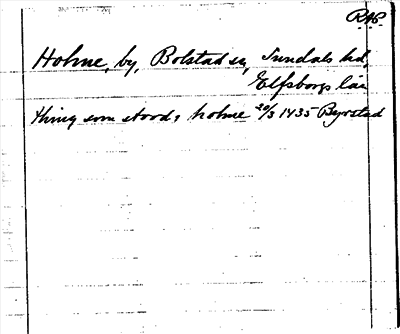 RAP
Holme, by, Bolstad sn, Sundals hd,
Elfsborgs län
thing som stood i holme 20/3 1435 Byrstad